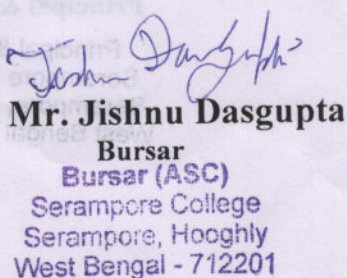 Jishnu Dasgupta
Mr. Jishnu Dasgupta
Bursar
Bursar (ASC)
Serampore College
Serampore, Hooghly
West Bengal - 712201